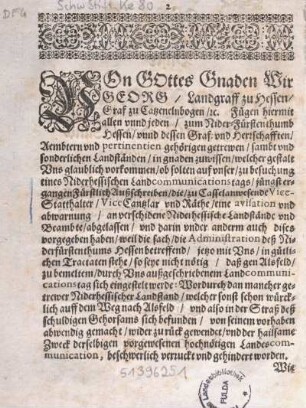 2
VOn GOttes Gnaden Wir
GEORG / Landgraff zu Hessen /
Graf zu Catzenelnbogen / ꝛc. Fügen hiermit
allen vnnd jeden / zum Nider-Fürstenthumb
Hessen / vnnd dessen Graf- vnd Herrschafften /
Aembtern vnd pertinentien gehörigen getrewen / sambt vnd
sonderlichen Landständen / in gnaden zuwissen / welcher gestalt
Vns glaublich vorkommen / ob solten auf vnser / zu besuchung
eines Niderhessischen Landcommunicationstags / jüngst er-
gangen Fürstlich Außschreiben / die zu Cassel anwesende Vice-
Statthalter / ViceCantzlar vnd Räthe / eine avisation vnd
abwarnung / an verschidene Niderhessische Landstände vnd
Beambte / abgelassen / vnd darin vnder anderm auch dises
vorgegeben haben / weil die sach / die Administration deß Ni-
derfürstenthumbs Hessen betreffend / jetzo mit Vns / in gütli-
chen Tractaten stehe / so seye nicht nötig / daß gen Alsfeld /
zu bemeltem / durch Vns außgeschriebenem Landcommuni-
cationstag sich eingestelt werde: Wordurch dan mancher ge-
trewer Niderhessischer Landstand / welcher sonst schon würck-
lich auff dem Weg nach Alsfeld / vnd also in der Straß deß
schuldigen Gehorsams sich befunden / von seinem vorhaben
abwendig gemacht / wider zu rück gewendet / vnd der hailsame
Zweck derselbigen vorgewesenen hochnötigen Landcom-
munication, beschwerlich verruckt vnd gehindert worden.
Wir
51396251
Landesbibliothek
FULDA